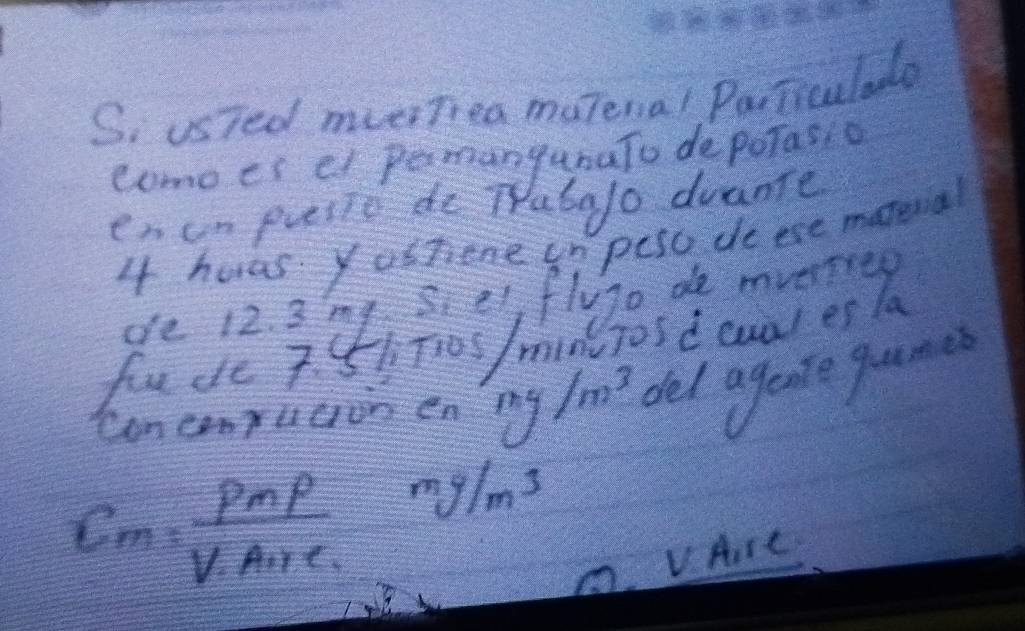 Si usted muestrea material Particulado
como es el permanganato de potasio
en un puesto de Trabajo durante
4 horas. y obtiene un peso de ese material
de 12.3 mg. Si el flujo de muestreo
fue de 7.5 litros/minutos ¿ cual es la
concentración en mg/m³ del agente quimico
Cm = PmP / V. Aire. mg/m³
Q. V Aire